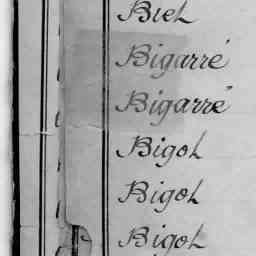 Biel
Bigarré
Bigarré
Bigot
Bigot
Bigot